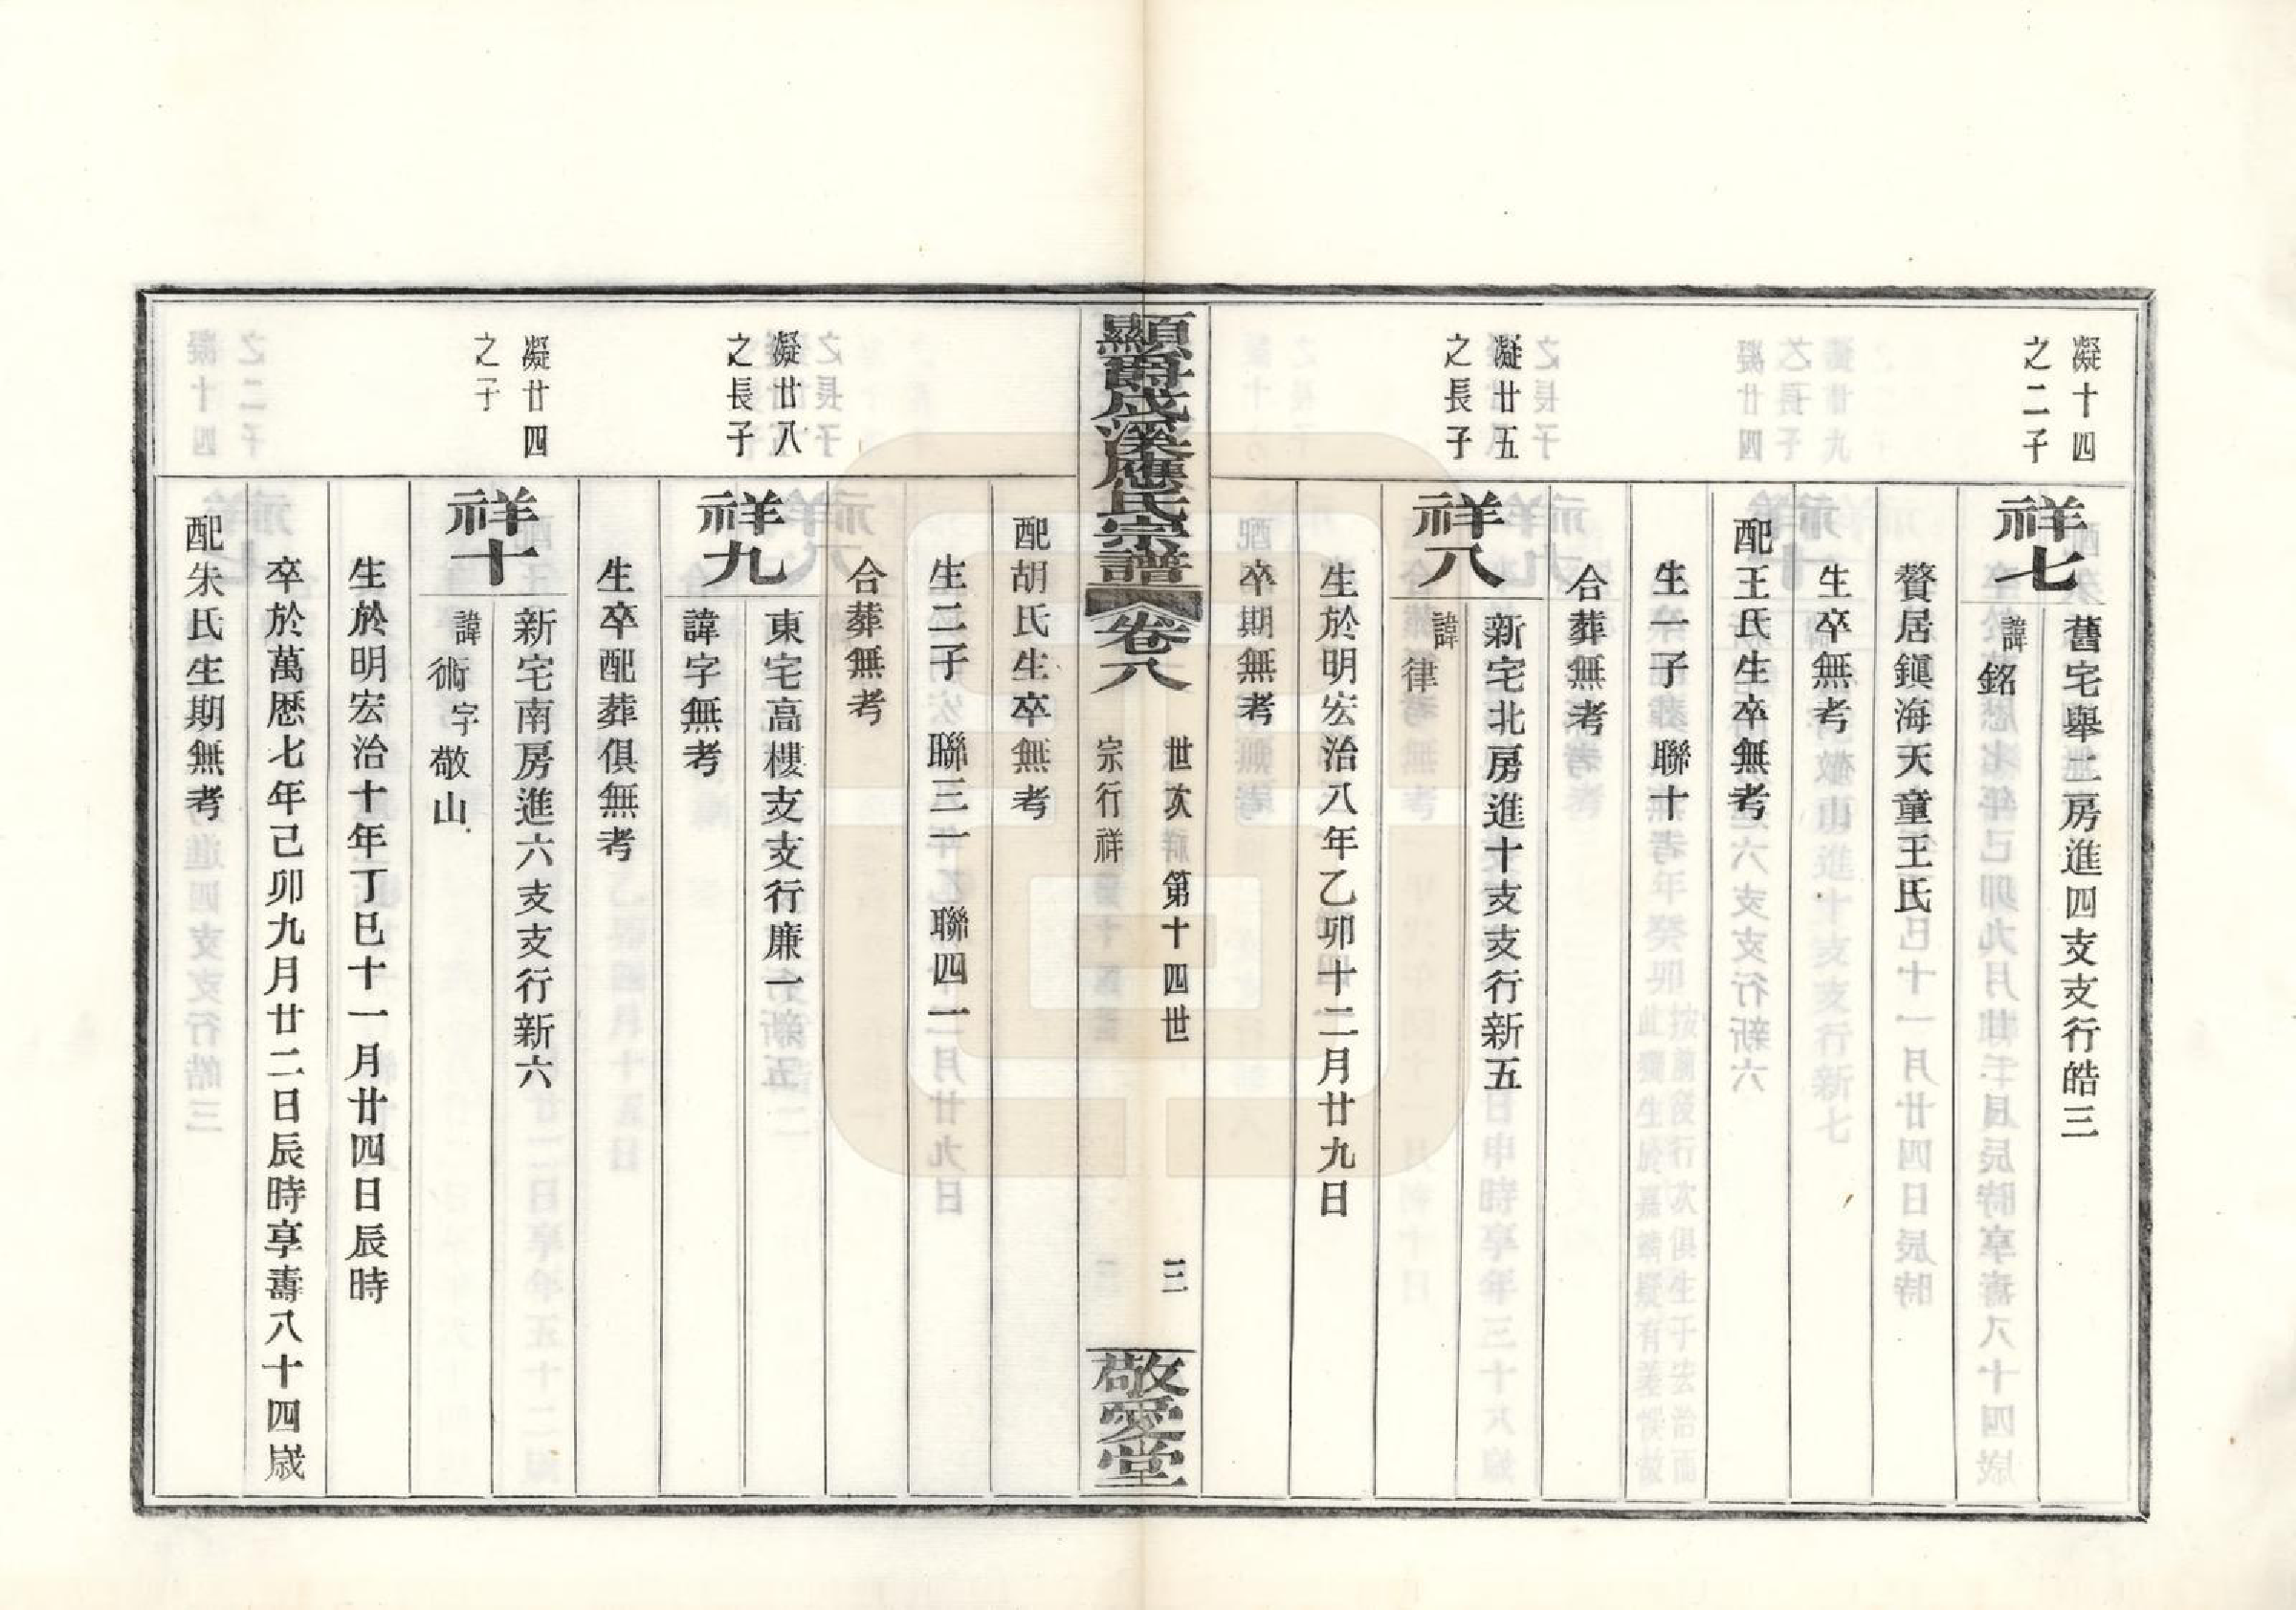 凝十四
之二子
祥七
舊宅舉二房進四支支行皓三
諱銘
贅居鎭海天童王氏
生卒無考
配王氏生卒無考
生一子 聯十
合葬無考
凝廿五
之長子
祥八
新宅北房進十支支行新五
諱律
生於明宏治八年乙卯十二月廿九日
卒期無考
顯爵茂溪應氏宗譜
卷八
世次 第十四世 三
宗行祥
敬愛堂
配胡氏生卒無考
生二子 聯三一 聯四一
合葬無考
凝廿八
之長子
祥九
東宅高樓支支行廉一
諱字無考
生卒配葬俱無考
凝廿四
之子
祥十
新宅南房進六支支行新六
諱術字敬山
生於明宏治十年丁巳十一月廿四日辰時
卒於萬歷七年己卯九月廿二日辰時享壽八十四歲
配朱氏生期無考